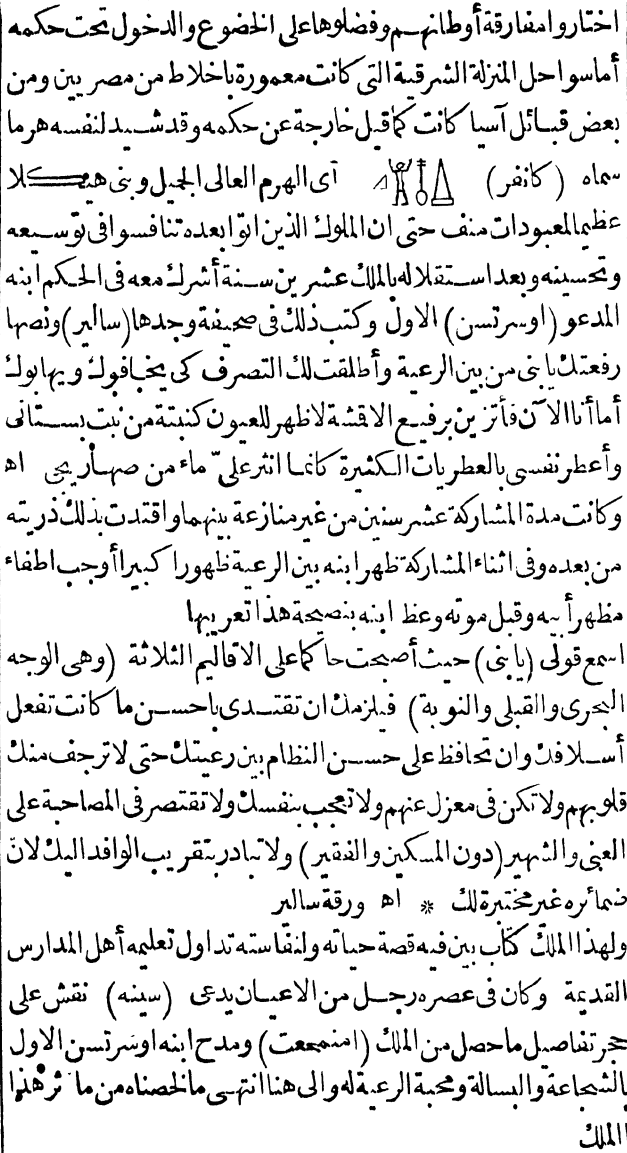 اختاروا مفارقة أوطانهم وفضلوها على الخضوع والدخول تحت حكمه
أما سواحل المنزلة الشرقية التى كانت معمورة باخلاط من مصريين ومن
بعض قبائل آسيا كانت كما قيل خارجة عن حكمه وقد شيد لنفسه هرما
سماه (كانفر) أى الهرم العالى الجميل وبنى هيكلا
عظيما لمعبودات منف حتى ان الملوك الذين اتوا بعده تنافسوا فى توسيعه
وتحسينه وبعد استقلاله بالملك عشرين سنة أشرك معه فى الحكم ابنه
المدعو (اوسرتسن) الاول وكتب ذلك فى صحيفة وجدها (سالير) ونصها
رفعتك يابنى من بين الرعية وأطلقت لك التصرف كى يخافوك ويهابوك
أما أنا الآن فأتزين برفيع الاقشة لاظهر للعيون كنبتة من نبت بستانى
وأعطر نفسى بالعطريات الكثيرة كانما انثر علىّ ماء من صهاريجى اه
وكانت مدة المشاركة عشر سنين من غير منازعة بينهما واقتدت بذلك ذريته
من بعده وفى اثناء المشاركة ظهر ابنه بين الرعية ظهورا كبيرا أوجب اطفاء
مظهر أبيه وقبل موته وعظ ابنه بنصيحة هذا تعريبها
اسمع قولى (يابنى) حيث أصبحت حاكما على الاقاليم الثلاثة (وهى الوجه
البحرى والقبلى والنوبة) فيلزمك ان تقتدى باحسن ما كانت تفعل
أسلافك وان تحافظ على حسن النظام بين رعيتك حتى لا ترجف منك
قلوبهم ولا تكن فى معزل عنهم ولا تعجب بنفسك ولا تقتصر فى المصاحبة على
الغنى والشهير (دون المسكين والفقير) ولا تبادر بتقريب الوافد اليك لانّ
ضمائره غير مختبرة لك * اه ورقة سالير
ولهذا الملك كتاب بين فيه قصة حياته ولنفاسته تداول تعليمه أهل المدارس
القديمة وكان فى عصره رجل من الاعيان يدعى (سينه) نقش على
حجر تفاصيل ما حصل من الملك (امنمحعت) ومدح ابنه اوسرتسن الاول
بالشجاعة والبسالة ومحبة الرعية له والى هنا انتهى ما لخصناه من مآثر هذا
الملك